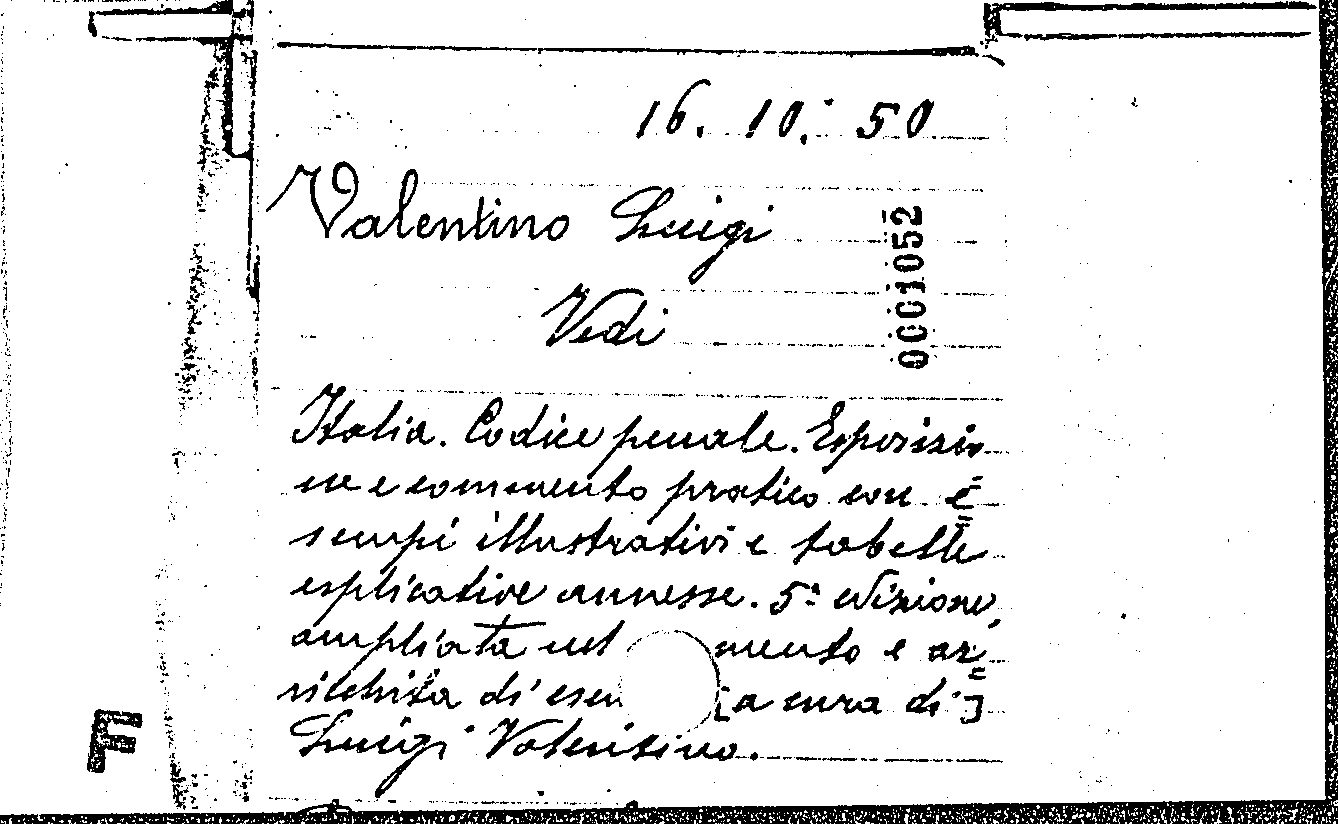 16. 10. 50
Valentino Luigi
0001052
Vedi
Italia. Codice penale. Esposizio
ne e commento pratico con e=
sempi illustrativi e tabelle
esplicative annesse. 5ª edizione,
ampliata nel mento e ar=
ricchita di esem [a cura di]
Luigi Valentino.
F